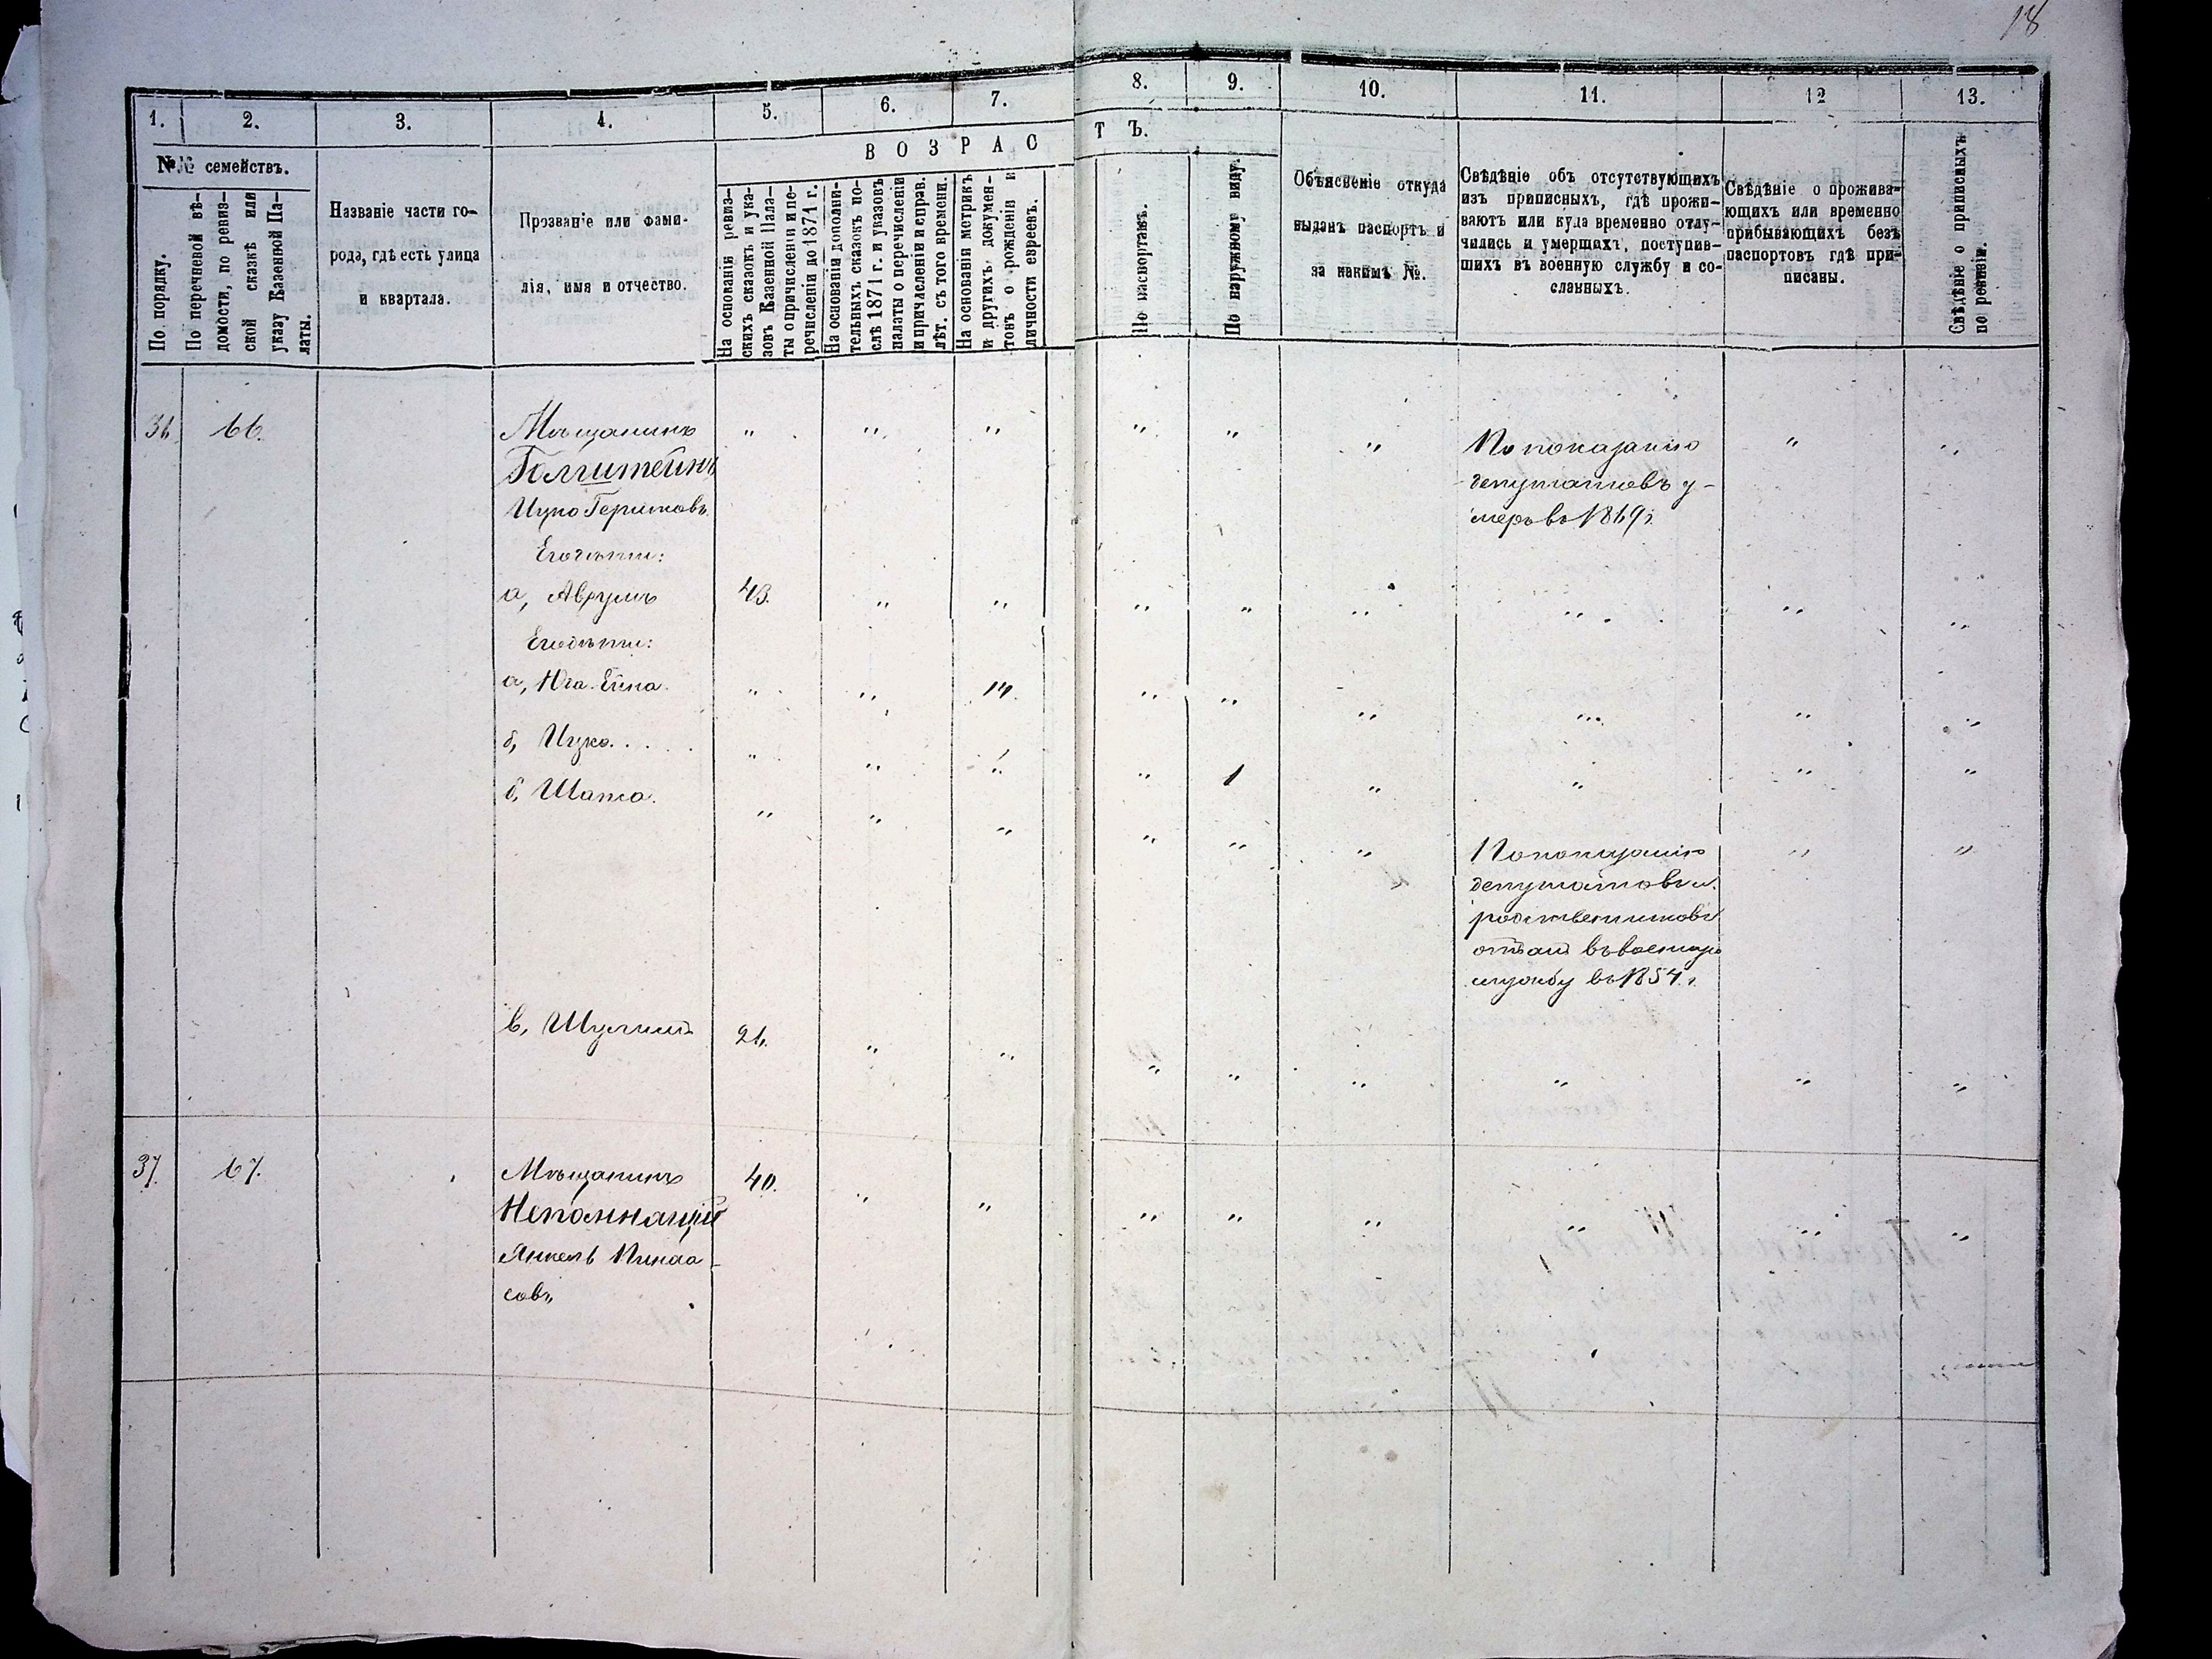 18
1. 2. 3. 4. 5. 6. 7. 8. 9. 10. 11. 12 13.
№№ семействъ.
По порядку.
По перечневой вѣ-
домости, по ревиз-
ской сказкѣ или
указу Казенной Па-
латы.
Названіе части го-
рода, гдѣ есть улица
и квартала.
Прозваніе или фами-
лія, имя и отчество.
ВОЗРАСТЪ.
На основаніи ревиз-
скихъ сказокъ и ука-
зовъ Казенной Пала-
ты о причисленіи и пе-
речисленіи до 1871 г.
На основаніи дополни-
тельныхъ сказокъ по-
слѣ 1871 г. и указовъ
палаты о перечисленіи
и причисленіи и справ.
лѣт. съ того времени.
На основаніи метрикъ
и другихъ докумен-
товъ о рожденіи и
личности евреевъ.
По паспортамъ.
По наружному виду.
Объясненіе откуда
выданъ паспортъ и
за какимъ №.
Свѣдѣніе объ отсутствующихъ
изъ приписныхъ, гдѣ прожи-
ваютъ или куда временно отлу-
чились и умершихъ, поступив-
шихъ въ военную службу и со-
сланныхъ.
Свѣдѣніе о прожива-
ющихъ или временно
прибывающихъ безъ
паспортовъ гдѣ при-
писаны.
Свѣдѣніе о приписныхъ
по ревизіи.
36. 66. Мѣщанинъ " " " " " " По показанію " "
Голштейнъ депутатовъ у-
Ицко Гершковъ. меръ въ 1869 г.
Его дѣти:
а, Аврумъ 43. " " " " " " " "
Его дѣти:
а, " " 14. " " " " " "
б, Ицко. . . . " " " " 1 " " " "
б, " " " " " " По показанію " "
депутатовъ и
родственниковъ
отданъ въ военную
службу въ 1854 г.
в, 26. " " " " " " " "
37. 67. Мѣщанинъ 40. " " " " " " " "
Непомнящій
Янкель Пинха-
совъ